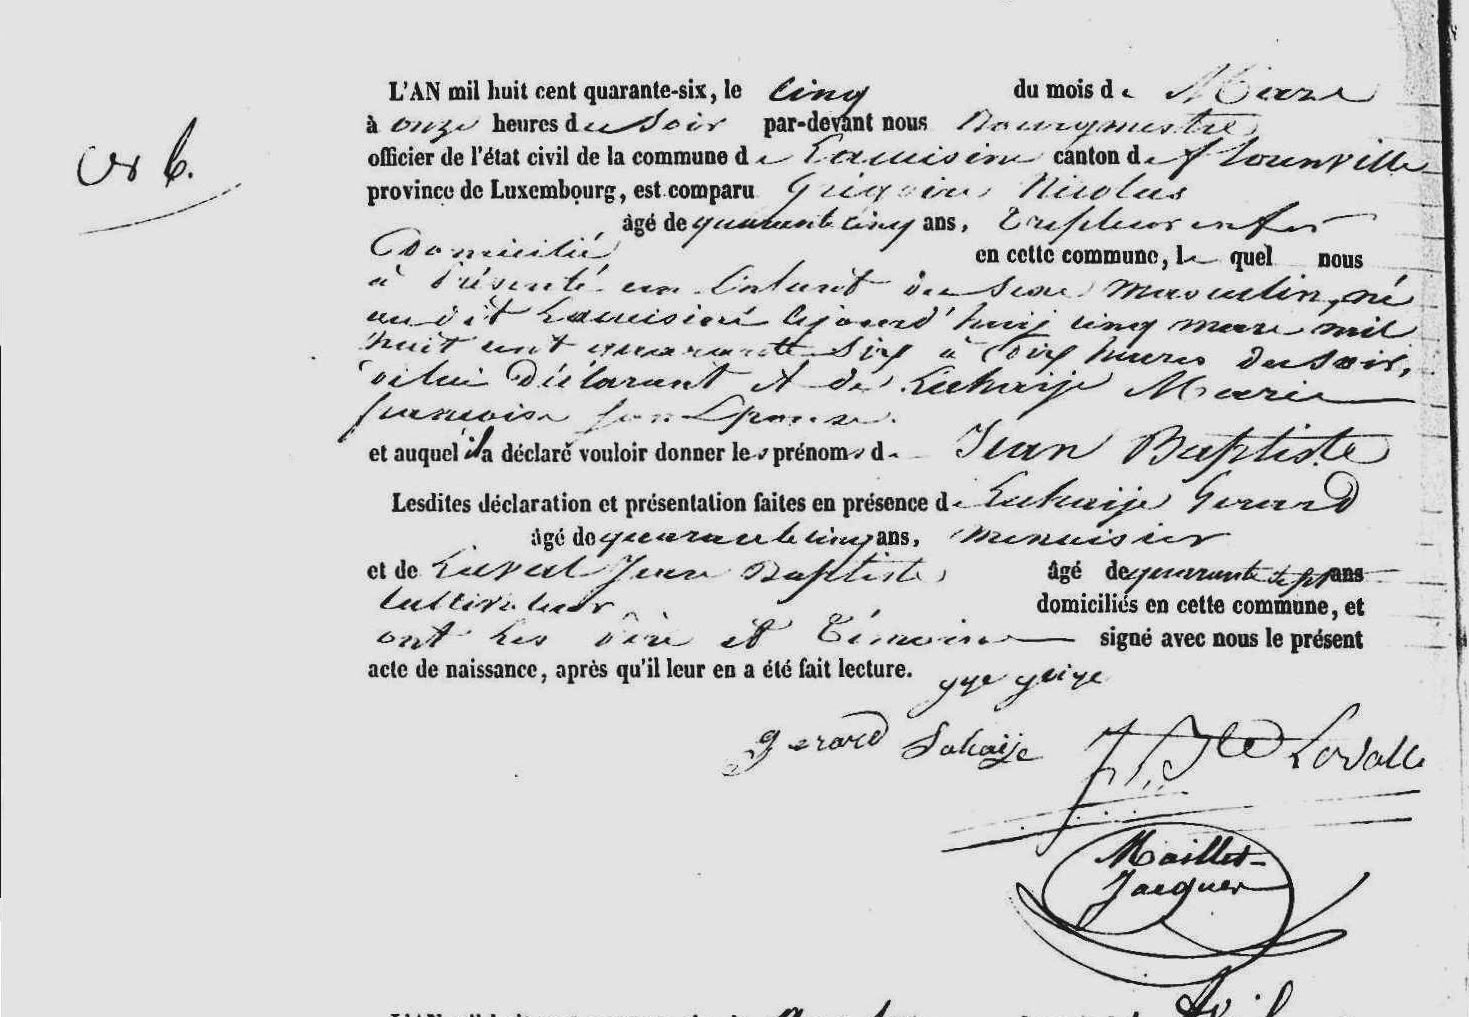 N° 6.
L'AN mil huit cent quarante-six, le Cinq du mois de Mars
à onze heures du Soir par-devant nous Bourgmestre
officier de l'état civil de la commune de Lacuisine canton de florenville
province de Luxembourg, est comparu Nicolas
âgé de quarante cinq ans,
Domicilié en cette commune, le quel nous
a présenté un Enfant du sexe masculin, né
au dit Lacuisine aujourd'huij cinq mars mil
huit cent quarante Six à Dix heures du soir,
de lui Déclarant et de Lahaije Marie
françoise son Epouse.
et auquel il a déclaré vouloir donner les prénoms de Jean Baptiste
Lesdites déclaration et présentation faites en présence de Lahaije Gerard
âgé de quarante cinq ans, menuisier
et de Jean Baptiste âgé de quarante sept ans
Cultivateur domiciliés en cette commune, et
ont Les Père et Témoins signé avec nous le présent
acte de naissance, après qu'il leur en a été fait lecture.
gerard Lahaije
Maillet
Jacques
L'AN